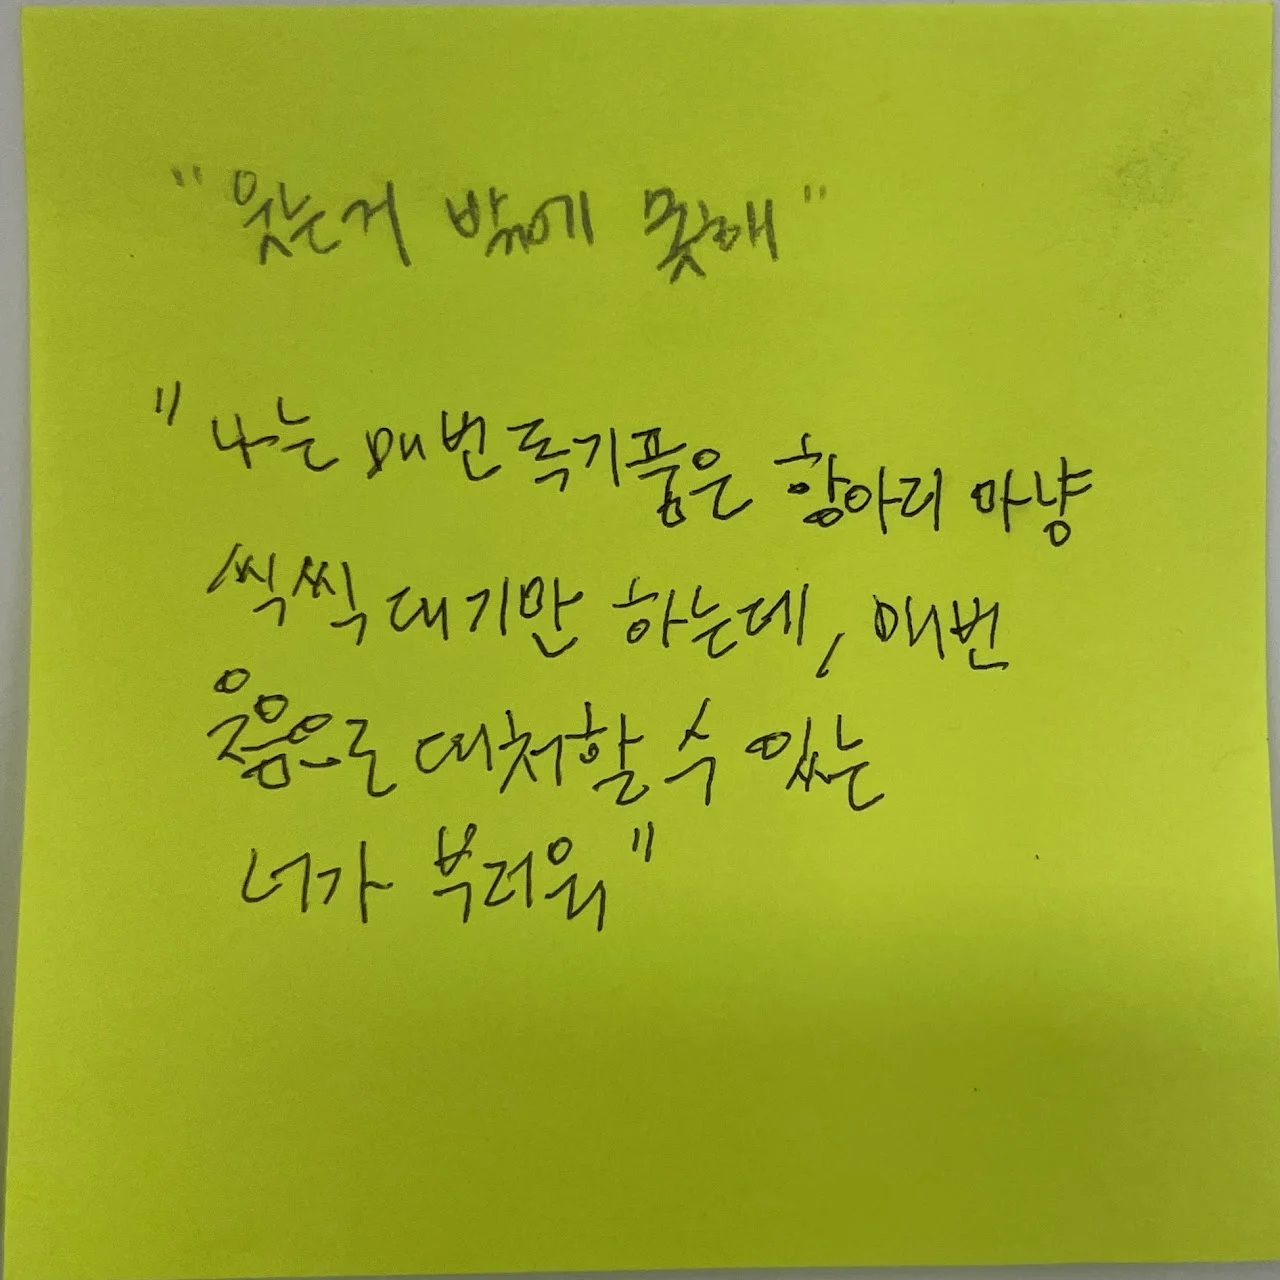 "웃는거 밖에 못해"
"나는 매번 독기품은 항아리 마냥
씩씩대기만 하는데, 매번
웃음으로 대처할 수 있는
너가 부러워"